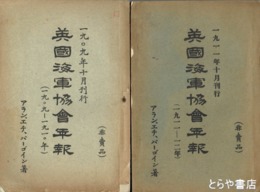 一九一一年十月刊行
英國海軍協會年報
(一九一一—一二年)
(非賣品)
アラン、エチ、バーゴイン著
一九〇九年十月刊行
英國海軍協會年報
(一九〇九—一九一〇年)
(非賣品)
アラン、エチ、バーゴイン著
とらや書房